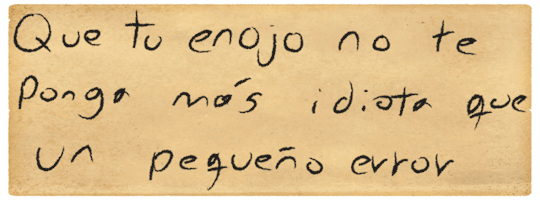 Que tu enojo no te
Ponga más idiota que
un pequeño error